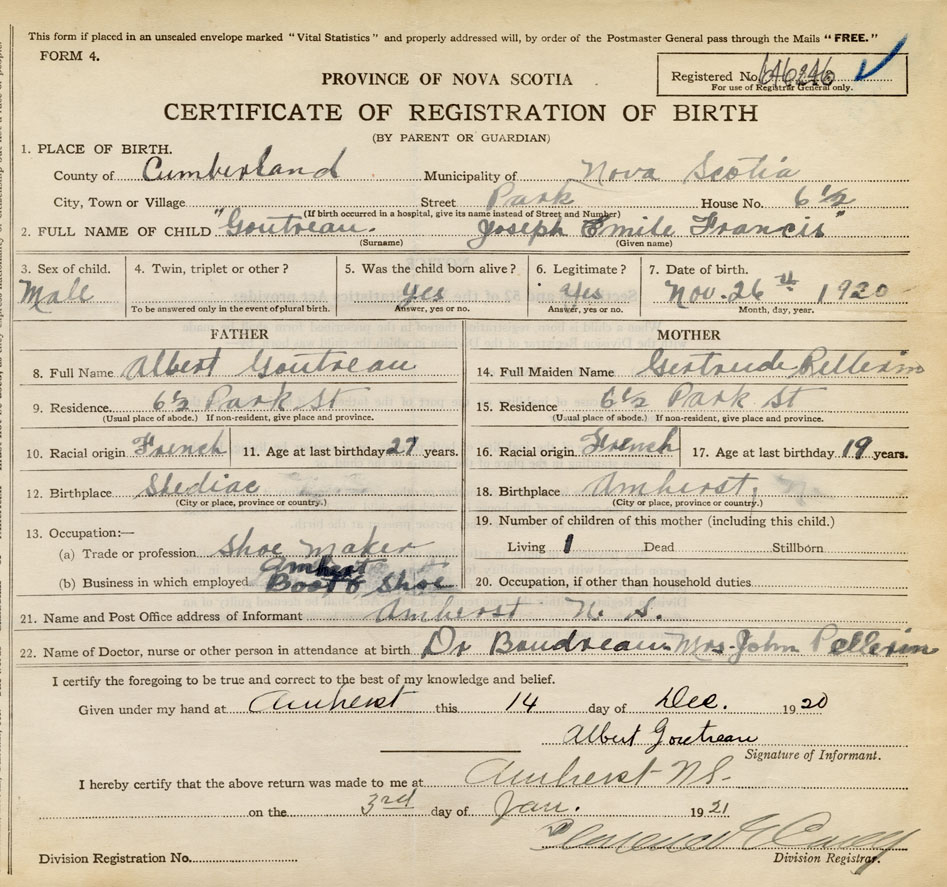 This form if placed in an unsealed envelope marked "Vital Statistics" and properly addressed will, by order of the Postmaster General pass through the Mails "FREE."
FORM 4.
PROVINCE OF NOVA SCOTIA
Registered No. 646246
For use of Registrar General only.
CERTIFICATE OF REGISTRATION OF BIRTH
(BY PARENT OR GUARDIAN)
1. PLACE OF BIRTH.
County of Cumberland Municipality of Nova Scotia
City, Town or Village Street Park House No. 6 1/2
(If birth occurred in a hospital, give its name instead of Street and Number)
2. FULL NAME OF CHILD "Goutreau. Joseph Emile Francis"
(Surname) (Given name)
3. Sex of child. 4. Twin, triplet or other? 5. Was the child born alive? 6. Legitimate? 7. Date of birth.
Male yes Yes Nov. 26th 1920
To be answered only in the event of plural birth. Answer, yes or no. Answer, yes or no. Month, day, year.
FATHER MOTHER
8. Full Name Albert Goutreau 14. Full Maiden Name Gertrude Pellerin
9. Residence 6 1/2 Park St 15. Residence 6 1/2 Park St
(Usual place of abode.) If non-resident, give place and province. (Usual place of abode.) If non-resident, give place and province.
10. Racial origin French 11. Age at last birthday 27 years. 16. Racial origin French 17. Age at last birthday 19 years.
12. Birthplace Shediac 18. Birthplace Amherst,
(City or place, province or country.) (City or place, province or country.)
13. Occupation:— 19. Number of children of this mother (including this child.)
(a) Trade or profession Shoe maker Living 1 Dead Stillborn
Amherst
(b) Business in which employed Boot & Shoe 20. Occupation, if other than household duties
21. Name and Post Office address of Informant Amherst N. S.
22. Name of Doctor, nurse or other person in attendance at birth Dr Boudreau Mrs. John Pellerin
I certify the foregoing to be true and correct to the best of my knowledge and belief.
Given under my hand at Amherst this 14 day of Dec. 1920
Albert Goutreau
Signature of Informant.
I hereby certify that the above return was made to me at Amherst N.S.
on the 3rd day of Jan. 1921
Division Registration No. Division Registrar.